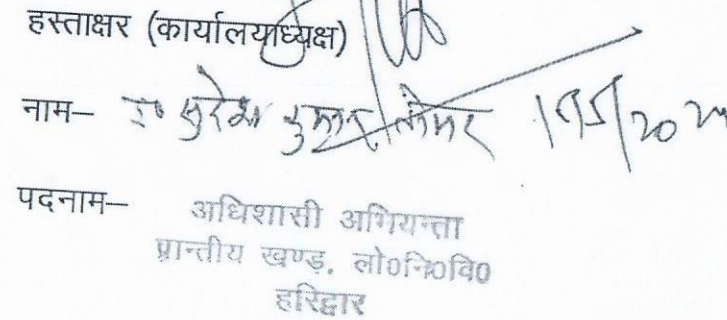 हस्ताक्षर (कार्यालयाध्यक्ष)
नाम– इ० सुरेश कुमार तोमर
पदनाम–
अधिशासी अभियन्ता
प्रान्तीय खण्ड, लो०नि०वि०
हरिद्वार